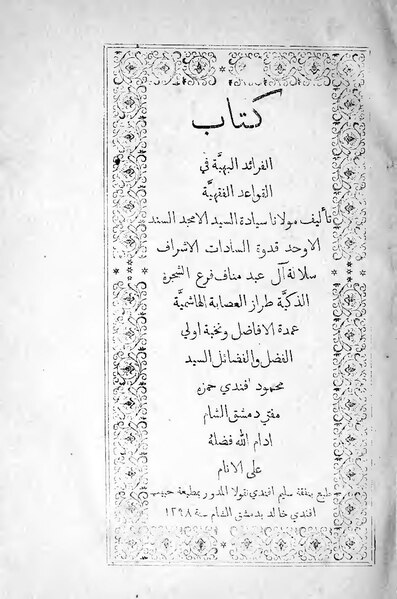 كتاب
الفرائد البهيَّة في
القواعد الفقهيَّة
تأليف مولانا سيادة السيد الامجد السند
الاوحد قدوة السادات الاشراف
سلالة آل عبد مناف فرع الشجرة
الذكيَّة طراز العصابة الهاشميَّة
عمدة الافاضل ونخبة اولي
الفضل والفضائل السيد
محمود افندي حمزه
مفتي دمشق الشام
ادام الله فضله
على الانام
طبع بنفقة سليم افندي نقولا المدور بمطبعة حبيب
افندي خالد بدمشق الشام سنة ١٢٩٨